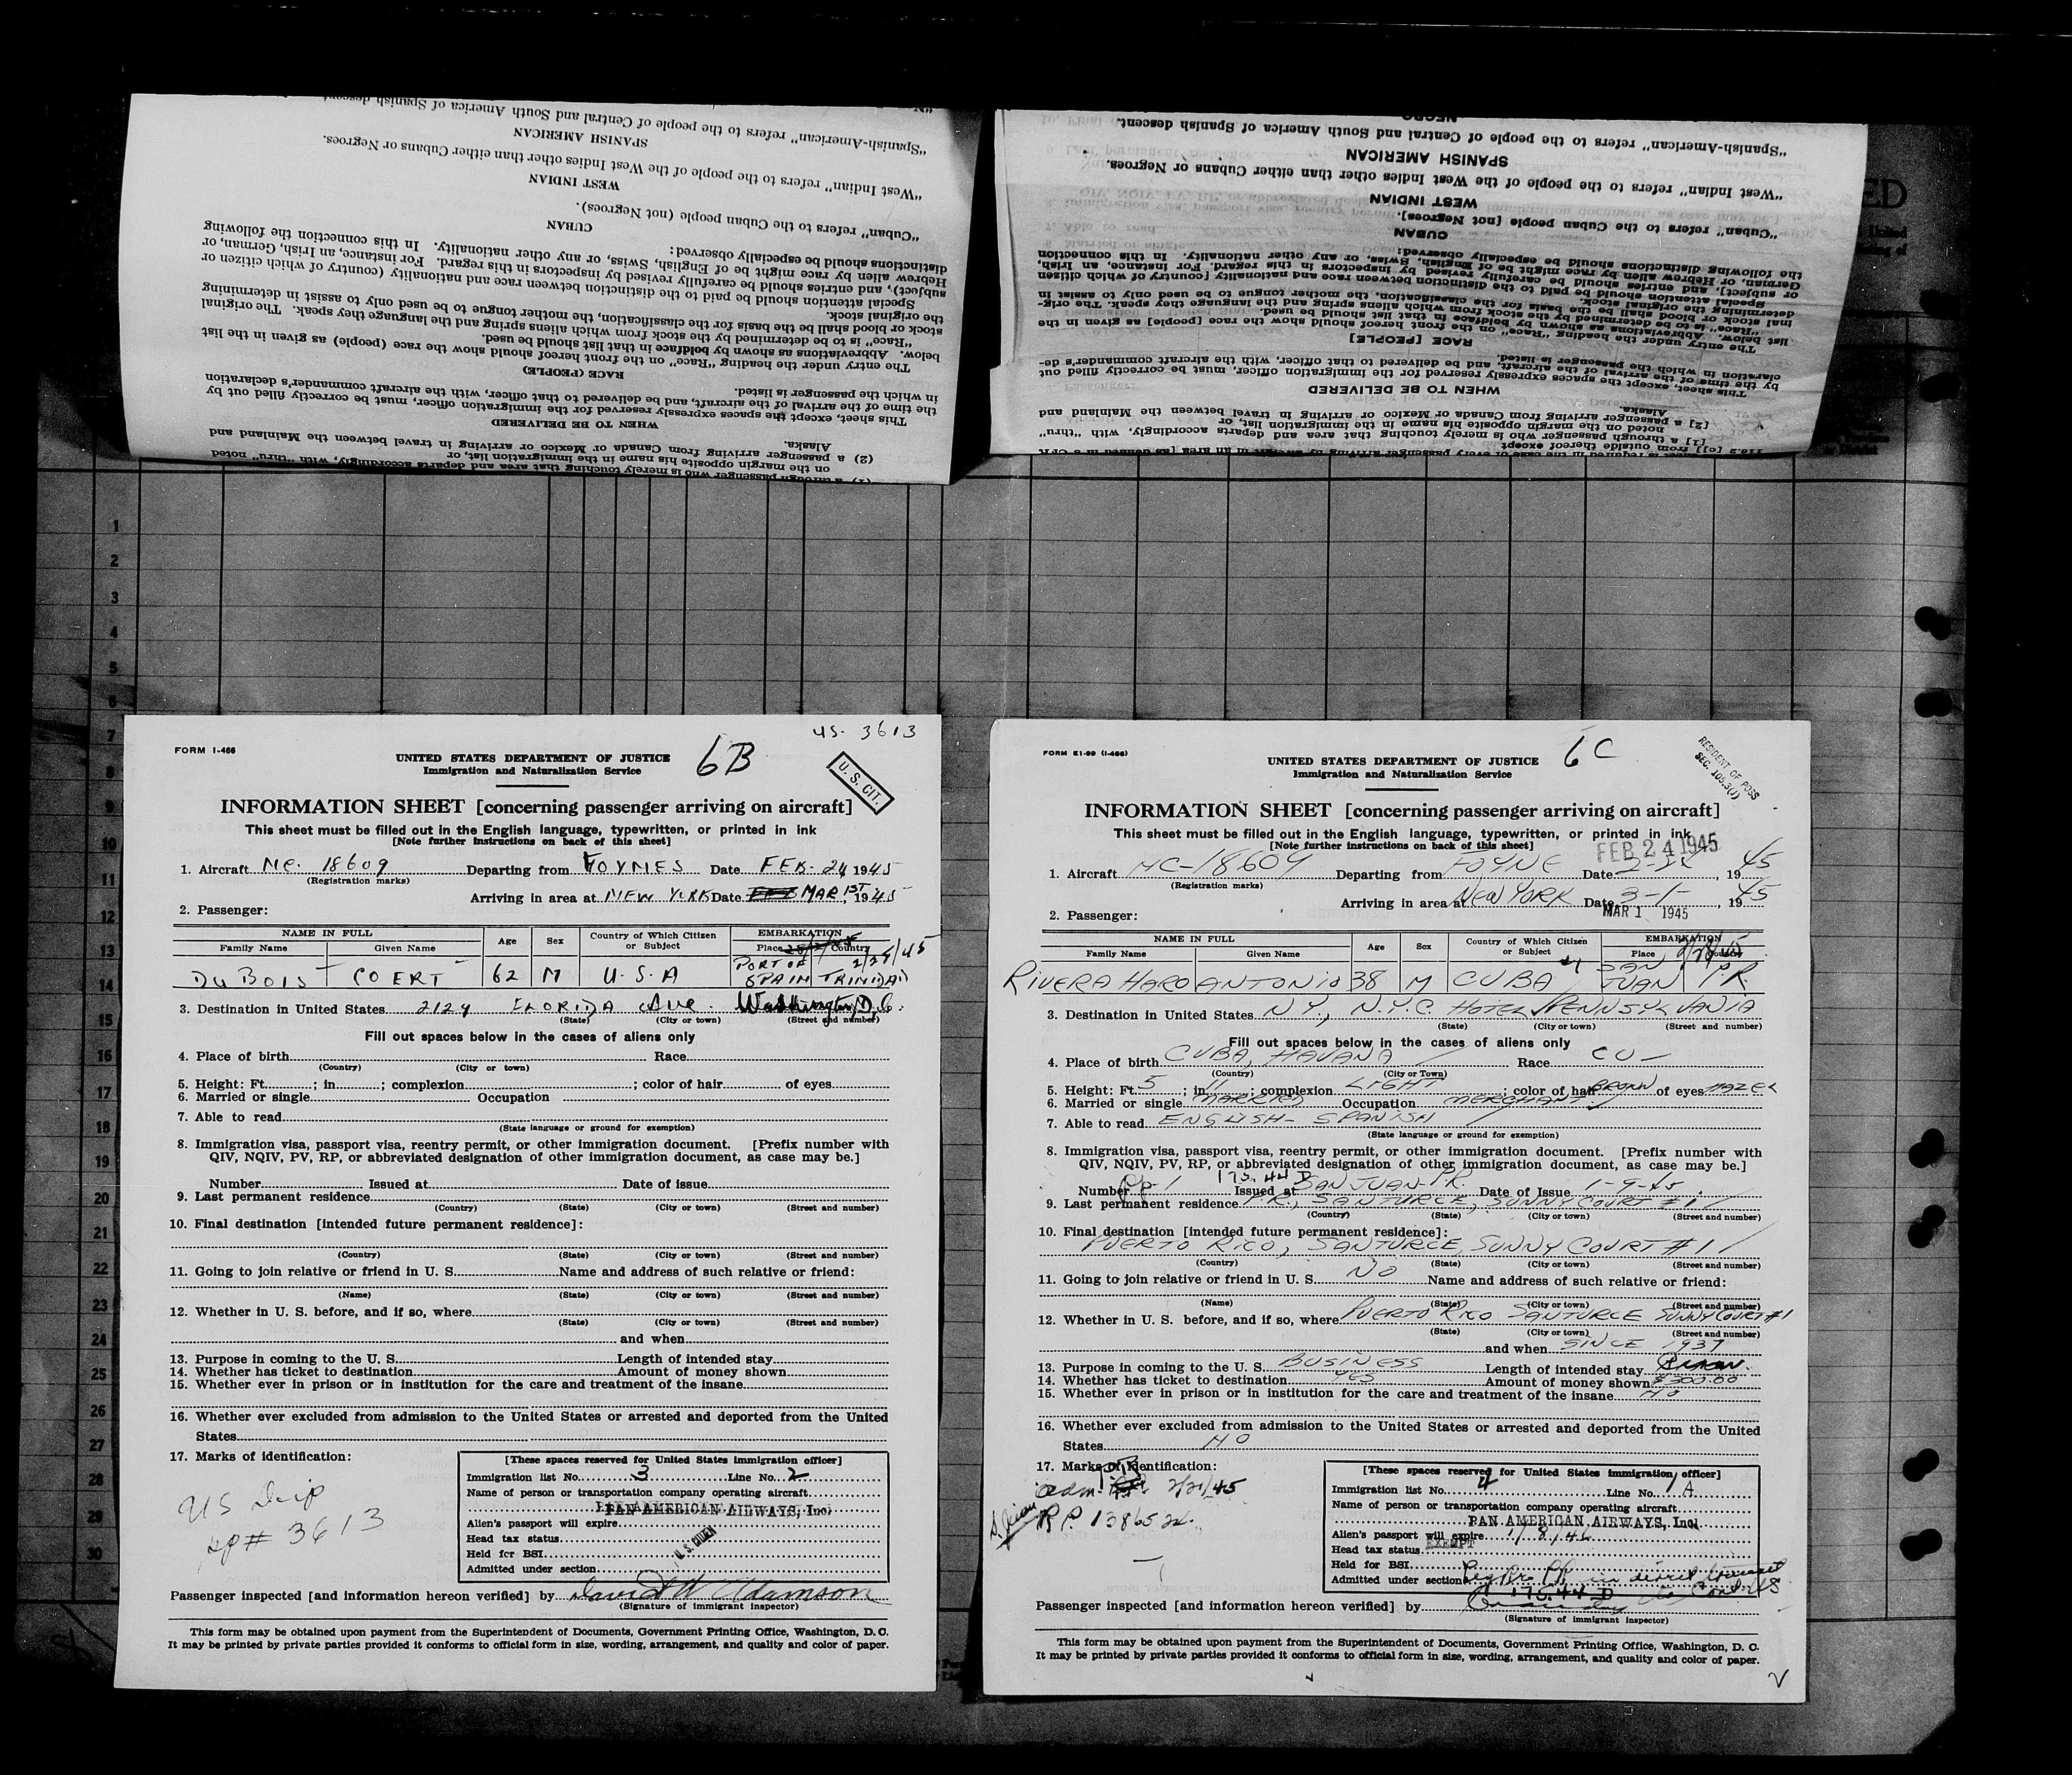 "Spanish-American" refers to the people of Central and South America of Spanish descent
SPANISH AMERICAN
"West Indian" refers to the people of the West Indies other than either Cubans or Negroes.
WEST INDIAN
"Cuban" refers to the Cuban people (not Negroes).
CUBAN
distinctions should be especially observed:
Hebrew alien by race might be of English, Swiss, or any other nationality. In this connection the following
subject), and entries should be carefully revised by inspectors in this regard. For instance, an Irish, German, or
Special attention should be paid to the distinction between race and nationality (country of which citizen or
the original stock.
stock or blood shall be the basis for the classification, the mother tongue to be used only to assist in determining
"Race" is to be determined by the stock from which aliens spring and the language they speak. The original
below. Abbreviations as shown by boldface in that list should be used.
The entry under the heading "Race" on the front hereof should show the race (people) as given in the list
RACE (PEOPLE)
in which the passenger is listed.
the time of the arrival of the aircraft, and be delivered to that officer, with the aircraft commander's declaration
This sheet, except the spaces expressly reserved for the immigration officer, must be correctly filled out by
WHEN TO BE DELIVERED
Alaska.
(2) a passenger arriving from Canada or Mexico or arriving in travel between the Mainland and
on the margin opposite his name in the immigration list, or
(1) a through passenger who is merely touching that area and departs accordingly, with "thru" noted
NEGRO
"Spanish-American" refers to the people of Central and South America of Spanish descent.
SPANISH AMERICAN
"West Indian" refers to the people of the West Indies other than either Cubans or Negroes.
WEST INDIAN
"Cuban" refers to the Cuban people [not Negroes].
CUBAN
the following distinctions should be especially observed:
German, or Hebrew alien by race might be of English, Swiss, or any other nationality. In this connection
or subject], and entries should be carefully revised by inspectors in this regard. For instance, an Irish,
Special attention should be paid to the distinction between race and nationality [country of which citizen
determining the original stock.
inal stock or blood shall be the basis for the classification, the mother tongue to be used only to assist in
"Race" is to be determined by the stock from which aliens spring and the language they speak. The orig-
list below. Abbreviations as shown by boldface in that list should be used.
The entry under the heading "Race" on the front hereof should show the race [people] as given in the
RACE [PEOPLE]
claration in which the passenger is listed.
by the time of the arrival of the aircraft, and be delivered to that officer, with the aircraft commander's de-
This sheet, except the spaces expressly reserved for the immigration officer, must be correctly filled out
WHEN TO BE DELIVERED
Alaska.
[2] a passenger arriving from Canada or Mexico or arriving in travel between the Mainland and
noted on the margin opposite his name in the immigration list, or
[1] a through passenger who is merely touching that area and departs accordingly, with "thru"
1
2
3
4
5
6
7
8
9
10
11
12
13
14
15
16
17
18
19
20
21
22
23
24
25
26
27
28
29
30
US. 3613
FORM I-466
6B
U. S. CIT.
UNITED STATES DEPARTMENT OF JUSTICE
Immigration and Naturalization Service
INFORMATION SHEET [concerning passenger arriving on aircraft]
This sheet must be filled out in the English language, typewritten, or printed in ink
[Note further instructions on back of this sheet]
1. Aircraft NC. 18609 Departing from FOYNES Date FEB. 24 1945
(Registration marks)
Arriving in area at NEW YORK Date MAR 1ST, 1945
2. Passenger:
NAME IN FULL Age Sex Country of Which Citizen or Subject EMBARKATION
Family Name Given Name Place Country
2/28/45
Du BOIS COERT 62 M U.S.A PORT OF SPAIN TRINIDAD
3. Destination in United States 2124 FLORIDA Ave. Washington, D.C.
(State) (City or town) (Street and number)
Fill out spaces below in the cases of aliens only
4. Place of birth Race
(Country) (City or town)
5. Height: Ft. ; in ; complexion ; color of hair of eyes
6. Married or single Occupation
7. Able to read
(State language or ground for exemption)
8. Immigration visa, passport visa, reentry permit, or other immigration document. [Prefix number with
QIV, NQIV, PV, RP, or abbreviated designation of other immigration document, as case may be.]
Number Issued at Date of issue
9. Last permanent residence
(Country) (State) (City or town) (Street and number)
10. Final destination [intended future permanent residence]:
(Country) (State) (City or town) (Street and number)
11. Going to join relative or friend in U. S. Name and address of such relative or friend:
(Name) (State) (City or town) (Street and number)
12. Whether in U. S. before, and if so, where
(State) (City or town) (Street and number)
and when
13. Purpose in coming to the U. S. Length of intended stay
14. Whether has ticket to destination Amount of money shown
15. Whether ever in prison or in institution for the care and treatment of the insane
16. Whether ever excluded from admission to the United States or arrested and deported from the United
States
17. Marks of identification:
US Dip
pp# 3613
[These spaces reserved for United States immigration officer]
Immigration list No. 3 Line No. 2
Name of person or transportation company operating aircraft
PAN AMERICAN AIRWAYS, Inc.
Alien's passport will expire
Head tax status
Held for BSI
Admitted under section
U. S. CITIZEN
Passenger inspected [and information hereon verified] by David W Adamson
(Signature of immigrant inspector)
This form may be obtained upon payment from the Superintendent of Documents, Government Printing Office, Washington, D. C.
It may be printed by private parties provided it conforms to official form in size, wording, arrangement, and quality and color of paper.
FORM E1-99 (I-466)
6C
RESIDENT OF POSS
SEC. 105.3(J)
UNITED STATES DEPARTMENT OF JUSTICE
Immigration and Naturalization Service
INFORMATION SHEET [concerning passenger arriving on aircraft]
This sheet must be filled out in the English language, typewritten, or printed in ink
[Note further instructions on back of this sheet]
FEB 24 1945
1. Aircraft NC-18609 Departing from FOYNE Date , 1945
(Registration marks)
Arriving in area at NEW YORK Date 3-1- , 1945
MAR 1 1945
2. Passenger:
NAME IN FULL Age Sex Country of Which Citizen or Subject EMBARKATION
Family Name Given Name Place Country
RIVERA HARO ANTONIO 38 M CUBA SAN JUAN P.R.
3. Destination in United States N.Y., N.Y.C. HOTEL PENNSYLVANIA
(State) (City or town) (Street and number)
Fill out spaces below in the cases of aliens only
4. Place of birth CUBA, HAVANA Race CU-
(Country) (City or Town)
5. Height: Ft. 5 ; in 11 ; complexion LIGHT ; color of hair BROWN of eyes HAZEL
6. Married or single MARRIED Occupation MERCHANT
7. Able to read ENGLISH- SPANISH
(State language or ground for exemption)
8. Immigration visa, passport visa, reentry permit, or other immigration document. [Prefix number with
QIV, NQIV, PV, RP, or abbreviated designation of other immigration document, as case may be.]
175.44 D
Number Issued at SAN JUAN-P.R. Date of Issue 1-9-45
9. Last permanent residence P.R., SANTURCE, SUNNY COURT #1
(Country) (State) (City or town) (Street and number)
10. Final destination [intended future permanent residence]:
PUERTO RICO, SANTURCE, SUNNY COURT #1
(Country) (State) (City or town) (Street and number)
11. Going to join relative or friend in U. S. NO Name and address of such relative or friend:
(Name) (State) (City or town) (Street and number)
12. Whether in U. S. before, and if so, where PUERTO RICO SANTURCE SUNNY COURT #1
(State) (City or town) (Street and number)
and when SINCE 1937
13. Purpose in coming to the U. S. BUSINESS Length of intended stay
14. Whether has ticket to destination YES Amount of money shown $300.00
15. Whether ever in prison or in institution for the care and treatment of the insane NO
16. Whether ever excluded from admission to the United States or arrested and deported from the United
States NO
17. Marks of identification:
[These spaces reserved for United States immigration officer]
Immigration list No. 4 Line No. 1A
Name of person or transportation company operating aircraft
PAN AMERICAN AIRWAYS, Inc.
Alien's passport will expire 1/8/46
Head tax status EXEMPT
Held for BSI
Admitted under section
175.44 D
Passenger inspected [and information hereon verified] by
(Signature of immigrant inspector)
This form may be obtained upon payment from the Superintendent of Documents, Government Printing Office, Washington, D. C.
It may be printed by private parties provided it conforms to official form in size, wording, arrangement, and quality and color of paper.